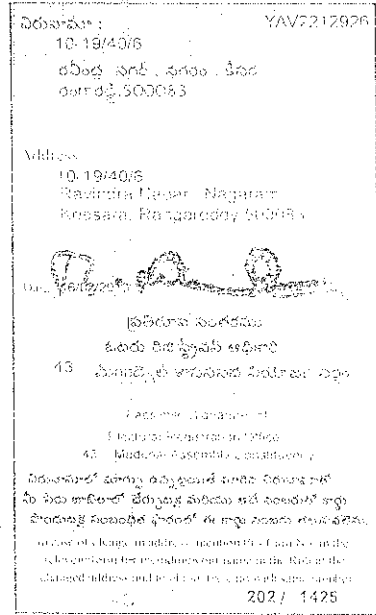 చిరునామా : YAV2212926
10-19/40/6
రవీంద్ర నగర్ , నగరం , కీసర
రంగారెడ్డి,500083
Address
10-19/40/6
Ravindra Nagar , Nagaram
Keesara, Rangareddy 500083
ఓటరు రిజిస్ట్రేషన్ అధికారి
43
Facsimile Signature of
Electoral Registration Officer
43 Assembly Constituency
చిరునామాలో మార్పు ఉన్నట్లయితే మారిన చిరునామాలో
మీ పేరు జాబితాలో చేర్చుటకై మరియు అదే నెంబరుతో కార్డు
పొందుటకై సంబంధిత ఫారంలో ఈ కార్డు నెంబరు తెలుపవలెను.
In case of change in address mention this Card No. in the
relevant form for including your name in the Roll at the
changed address and to obtain the card with same number
202 / 1425